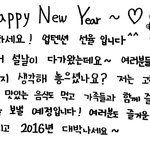 appy New Year ~ ♡
하세요! 업텐션 선율 입니다^^
설날이 다가왔는데요~ 여러분들
지 생각해 놓으셨나요? 저는 고
맛있는 음식도 먹고 가족들과 함께 즐
보낼 예정입니다! 여러분도 즐거운
리고 2016년 대박나세요~